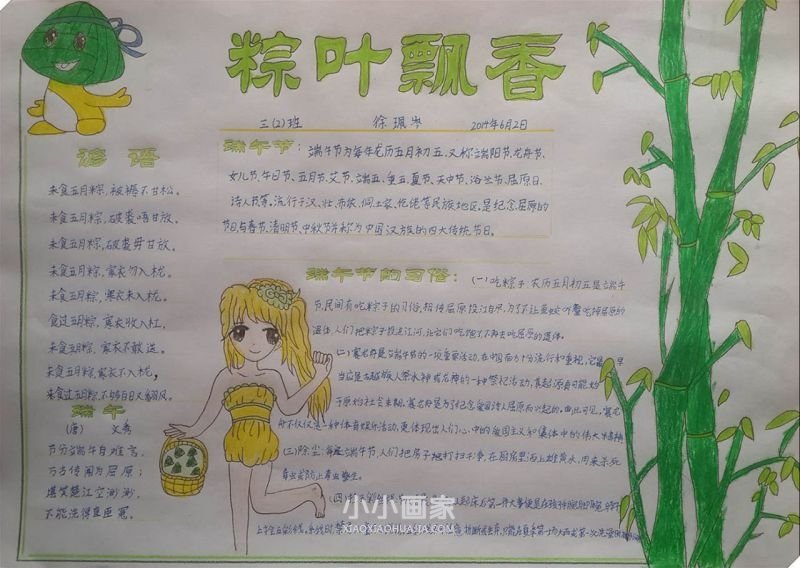 粽叶飘香
三(2)班 徐珮岑 2014年6月2日
谚语
未食五月粽,被褥不甘松。
未食五月粽,破裘唔甘放。
未食五月粽,破裘毋甘放。
未食五月粽,寒衣勿入栊。
未食五月粽,寒衣未入栊。
食过五月粽,寒衣收入杠,
未食五月粽,寒衣不敢送。
未食五月粽,寒衣不入栊,
未食过五月粽,不够百日又翻风。
端午
(唐) 文秀
节分端午自谁言,
万古传闻为屈原;
堪笑楚江空渺渺,
不能洗得直臣冤。
端午节:端午节为每年农历五月初五,又称端阳节、龙舟节、
女儿节、午日节、五月节、艾节、端五、重五、夏节、天中节、浴兰节、屈原日、
诗人节等。流行于汉、壮、布依、侗、土家、仡佬等民族地区。是纪念屈原的
节日,与春节、清明节、中秋节并称为中国汉族的四大传统节日。
端午节的习俗:(一)吃粽子:农历五月初五是端午
节,民间有吃粽子的习俗,相传屈原投江自尽,为了不让鱼蛟吃掉屈原的
遗体,人们把粽子投进江河,让它们吃饱了不再去吃屈原的遗体。
(二)赛龙舟是端午节的一项重要活动,在中国南方十分流行
当应是古越族人祭水神或龙神的一种祭祀活动,其起源有可能始
于原始社会末期。赛龙舟是为了纪念爱国诗人屈原而兴起的。由此可见,赛龙
舟不仅仅是一种体育娱乐活动,更体现出人们心中的爱国主义和集体
(三)除尘:每逢端午节,人们把房子地打扫干净,在厨房里洒上雄黄水,用来杀死
毒虫或防止毒虫孳生。
(四)
小小画家
XIAOXIAOHUAJIA.COM